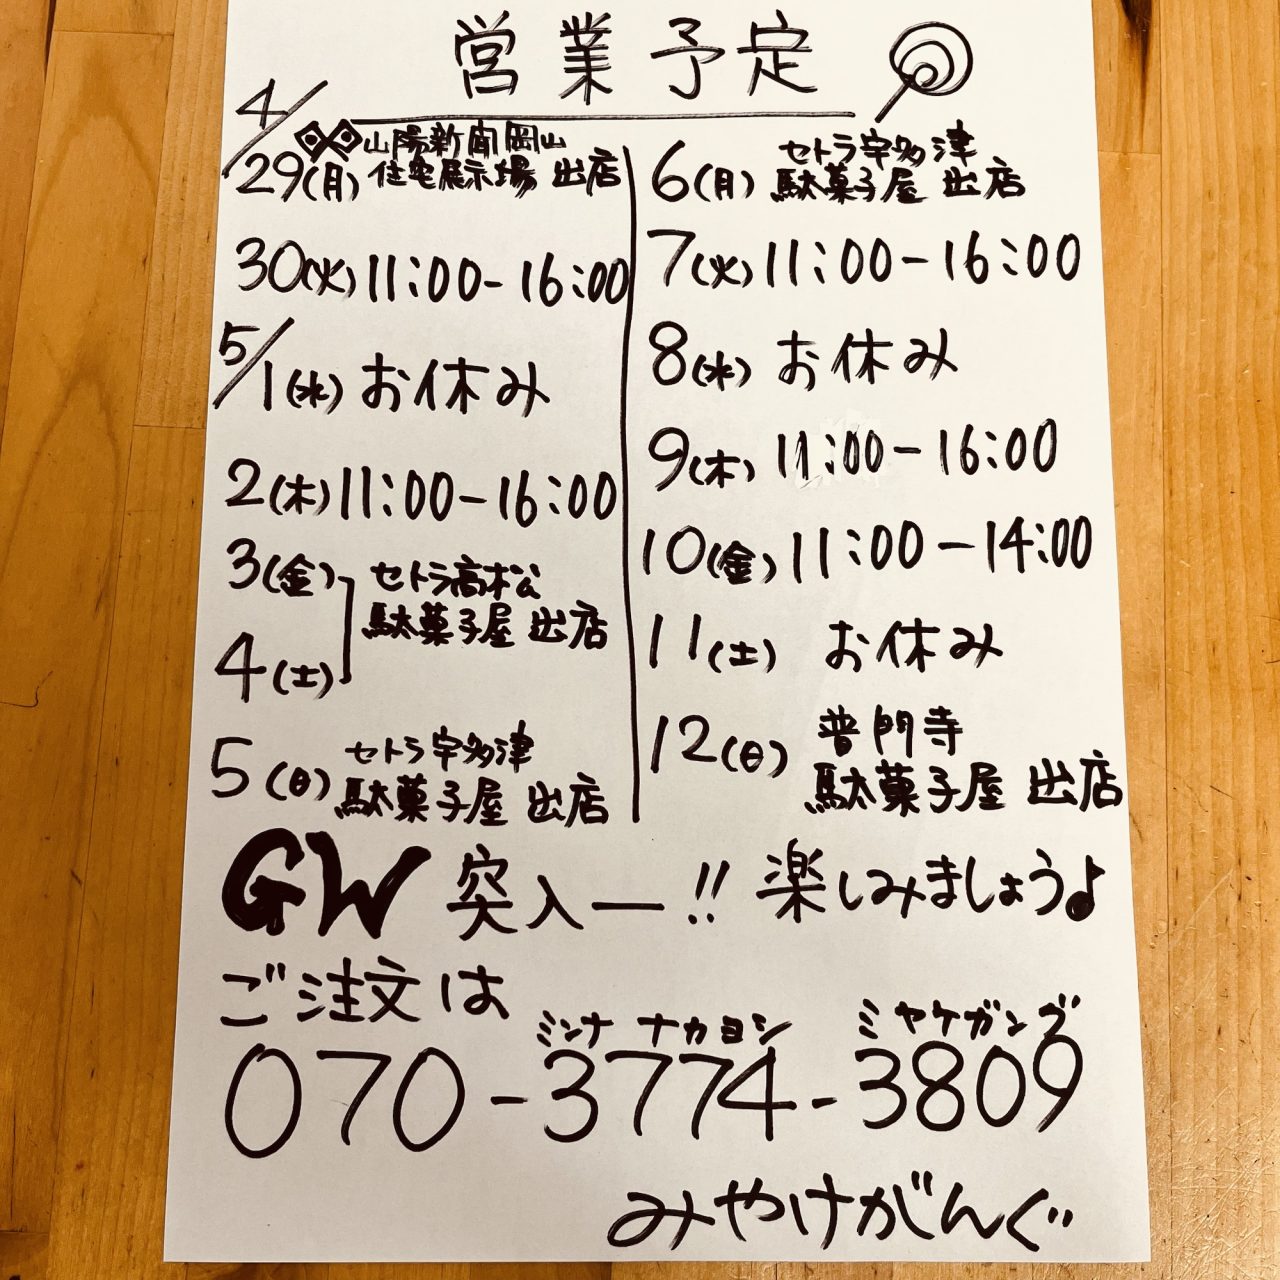 営業予定
4/29(月) 山陽新聞岡山
住宅展示場 出店
30(火) 11:00-16:00
5/1(水) お休み
2(木) 11:00-16:00
3(金)
4(土)
セトラ高松
駄菓子屋 出店
5(日) セトラ宇多津
駄菓子屋 出店
6(月) セトラ宇多津
駄菓子屋 出店
7(火) 11:00-16:00
8(水) お休み
9(木) 11:00-16:00
10(金) 11:00-14:00
11(土) お休み
12(日) 普門寺
駄菓子屋 出店
GW 突入ー!! 楽しみましょう♪
ご注文は
ミンナ ナカヨシ ミヤケガング
070-3774-3809
みやけがんぐ